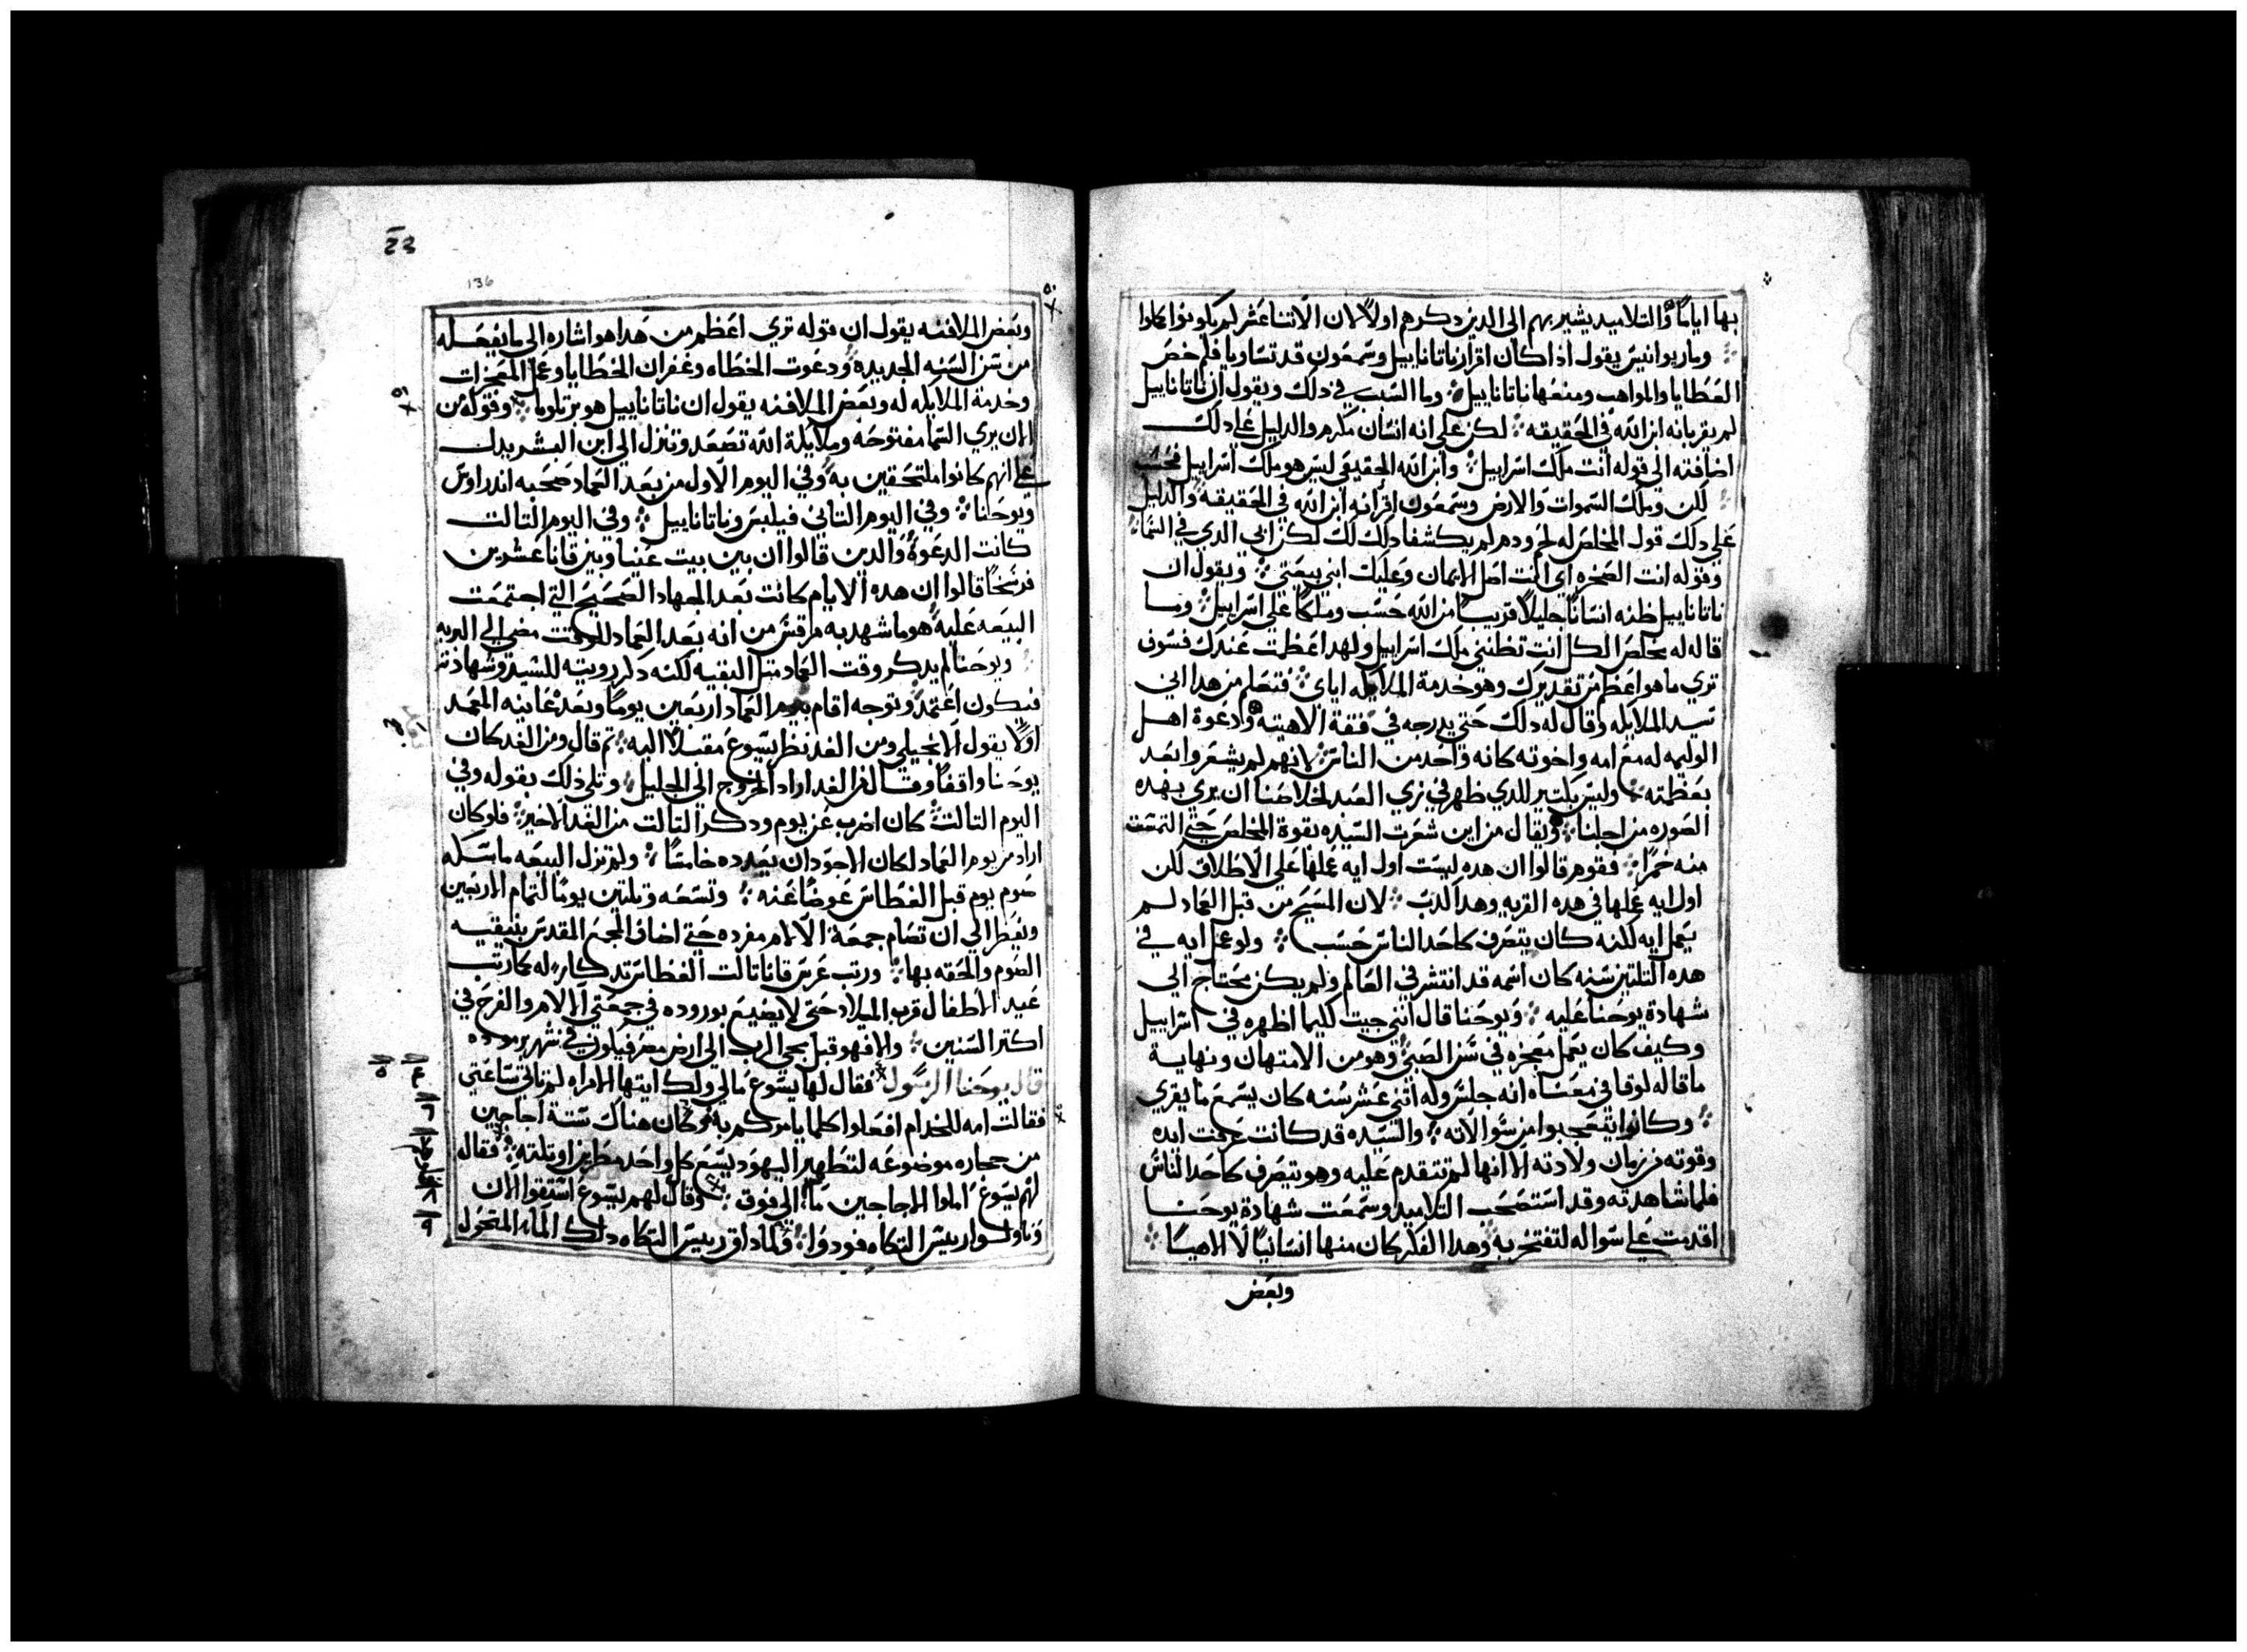 بها اياما والتلاميد يشير بهم الى الدين دكرهم اولا لان الاتنا عشر لم يكونوا كملوا
وماربوانيس يقول اذا كان اقرار ناتاناييل وسمعون قد تساويا فلم خص
العطايا والمواهب ومنعها ناتاناييل وما السبب في دلك ويقول ان ناتاناييل
لم يقر بانه ابن الله في الحقيقه لكن على انه انسان مكرم والدليل على دلك
اضافته الى قوله انت ملك اسراييل وابن الله الحقيقي ليس هو ملك اسراييل فحسب
لكن وملك السموات والارض وسمعون اقر انه ابن الله في الحقيقه والدليل
على دلك قول المخلص له لحم ودم لم يكشفا دلك لك لكن ابي الدي في السما
وقوله انت الصخره اي انت اصل الايمان وعليك ابني بيعتي ويقول ان
ناتاناييل ظنه انسانا جليلا قريبا من الله حسب وملكا على اسراييل وما
قاله له مخلص الكل انت تظنني ملك اسراييل ولهدا عظمت عندك فسوف
تري ما هو اعظم من تقديرك وهو خدمة الملايكه اياي فتعلم من هدا اني
سيد الملايكه وقال له دلك حتى يدرجه في فقة الاهيته ودعوة اهل
الوليمه له مع امه واخوته كانه واحد من الناس لانهم لم يشعروا بعد
بعظمته وليس بكتير للدي ظهر في زي العبد لخلاصنا ان يري بهده
الصوره من اجلنا ويقال من اين شعرت السيده بقوة المخلص حتى التمست
منه خمرا فقوم قالوا ان هده ليست اول ايه عملها على الاطلاق لكن
اول ايه عملها في هده القريه وهدا كدب لان المسيح من قبل العماد لم
يعمل ايه لكنه كان يتصرف كاحد الناس حسب ولو عمل ايه في
هده التلتين سنه كان اسمه قد انتشر في العالم ولم يكن يحتاج الى
شهادة يوحنا عليه ويوحنا قال انني جيت كليما اظهره في اسراييل
وكيف كان يعمل معجزه في سن الصبي وهو من الامتهان ونهاية
ما قاله لوقا في معناه انه جلس وله اثني عشر سنه كان يسمع ما يقري
وكانوا يتعجبوا من سوالاته والسيده قد كانت عرفت ايده
وقوته من زمان ولادته الا انها لم تتقدم عليه وهو يتصرف كاحد الناس
فلما شاهدته وقد استصحب التلاميد وسمعت شهادة يوحنا
اقدمت على سواله لتفتخر به وهدا الفكر كان منها انسانيا لا الاهيا
وبعض
23
136
وبعض الملافنه يقول ان قوله تري اعظم من هدا هو اشاره الى ما يفعله
من سن السنه الجديده ودعوت الخطاه وغفران الخطايا وعمل المعجزات
وخدمة الملايكه له وبعض الملافنه يقول ان ناتاناييل هو برتلوما وقوله من
الان يري السما مفتوحه وملايكة الله تصعد وتنزل الى ابن البشر يدل
على انهم كانوا ملتحقين به وفي اليوم الاول من بعد العماد صحبه اندراوس
ويوحنا وفي اليوم التاني فيلبس وناتاناييل وفي اليوم التالت
كانت الدعوة والدين قالوا ان بين بيت عنيا وبين قانا عشرين
فرسخا قالوا ان هده الايام كانت بعد الجهاد الصحيح التي اجتمعت
البيعه عليه هو ما شهد به مرقس من انه بعد العماد للوقت مضى الى البريه
ويوحنا لم يدكر وقت العماد متل البقيه لكنه دكر رويته للسيد وشهادته
فيكون اعتمد وتوجه اقام بعد العماد اربعين يوما وبعد عاينه المعمد
اولا يقول الانجيلي ومن الغد نظر يسوع مقبلا اليه تم قال ومن الغد كان
يوحنا واقفا وقال من الغد اراد الخروج الى الجليل وتلى ذلك بقوله وفي
اليوم التالت كان اضرب عن يوم ودكر التالت من الغد الاخير فلو كان
اراد من يوم العماد لكان الاجود ان يعدده خامسا ولم تزل البيعه ماسكه
صوم يوم قبل الغطاس عوضا عنه وتسعه وتلتين يوما لتمام الاربعين
ويفطر الى ان تصام جمعة الالام مفرده حتى اضاف المجمع المقدس بنيقيه
الصوم والحقه بها ورتب عرس قانا تالت الغطاس تدكار له كما رتب
عيد الاطفال قرب الميلاد حتى لا يضيع بوروده في جمعتي الالام والفرح في
اكتر السنين والا فهو قبل مجي الرب الى ارض مصر فيكون في شهر برموده
قال يوحنا الرسول فقال لها يسوع مالي ولك ايتها الامراه لم تاتي ساعتي
فقالت امه للخدام افعلوا كلما يامركم به وكان هناك ستة اجاجين
من حجاره موضوعه لتطهير اليهود يسع كل واحد مطرين او تلته فقال
لهم يسوع املوا الاجاجين ما الى فوق وقال لهم يسوع استقوا الان
وناولوا ريس التكاه فودوا فلما داق ريس التكاه دلك الماء المتحول